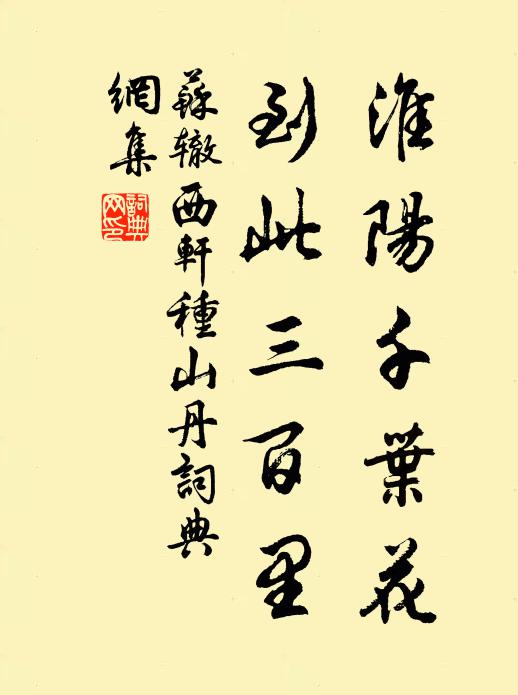 淮陽千葉花
到此三百里
蘇辙西軒種山丹詞典
網集
詞典
网印